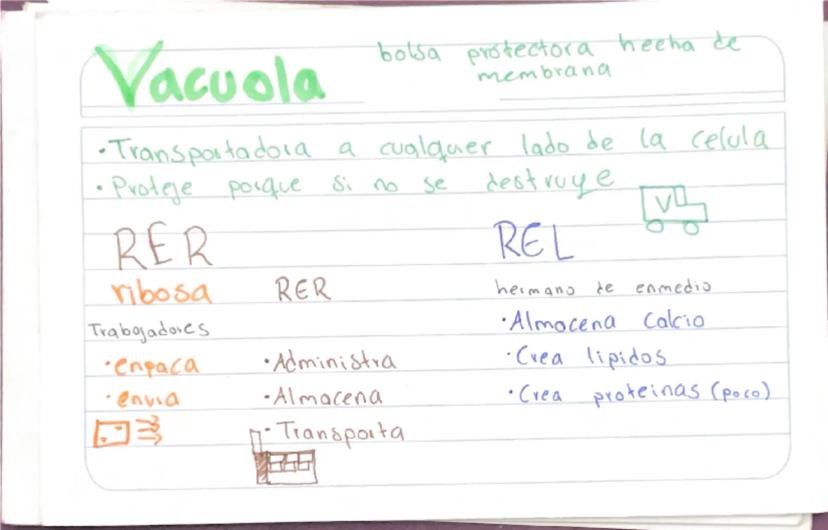 Vacuola
bolsa protectora hecha de
membrana
• Transportadora a cualquer lado de la celula
• Proteje porque si no se destruye
V
RER
REL
ribosa
RER
hermano de enmedio
Trabajadores
• Almacena Calcio
• enpaca
• Administra
• Crea lipidos
• envia
• Almacena
• Crea proteinas (poco)
• Transporta